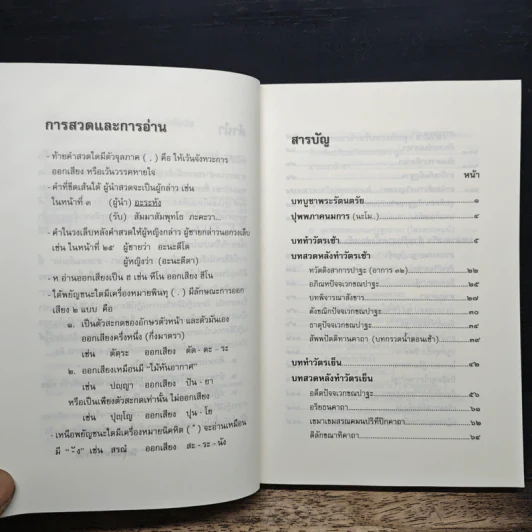 การสวดและการอ่าน
- ท้ายคำสวดใดมีตัวจุลภาค ( , ) คือ ให้เว้นจังหวะการ
ออกเสียง หรือเว้นวรรคหายใจ
- คำที่ขีดเส้นใต้ ผู้นำสวดจะเป็นผู้กล่าว เช่น
ในหน้าที่ ๓ (ผู้นำ) อะระหัง
(รับ) สัมมาสัมพุทโธ ภะคะวา...
- คำในวงเล็บหลังคำสวดให้ผู้หญิงกล่าว ผู้ชายกล่าวนอกวงเล็บ
เช่น ในหน้าที่ ๒๕ ผู้ชายว่า อะนะตีโต
ผู้หญิงว่า (อะนะตีตา)
- ห อ่านออกเสียงเป็น ฮ เช่น หีโน ออกเสียง ฮีโน
- ใต้พยัญชนะใดมีเครื่องหมายพินทุ ( . ) มีลักษณะการออก
เสียง ๒ แบบ คือ
๑. เป็นตัวสะกดของอักษรตัวหน้า และตัวมันเอง
ออกเสียงครึ่งหนึ่ง (กึ่งมาตรา)
เช่น ตัตฺระ ออกเสียง ตัด - ตะ - ระ
๒. ออกเสียงเหมือนมี "ไม้หันอากาศ"
เช่น ปญฺญา ออกเสียง ปัน - ยา
หรือเป็นเพียงตัวสะกดเท่านั้น ไม่ออกเสียง
เช่น ปุญฺโญ ออกเสียง ปุน - โย
- เหนือพยัญชนะใดมีเครื่องหมายนิคหิต ( ํ ) จะอ่านเหมือน
มี "-ัง" เช่น สรณํ ออกเสียง สะ - ระ - นัง
สารบัญ
หน้า
บทบูชาพระรัตนตรัย ๑
ปุพพภาคนมการ (นะโม..) ๔
บททำวัตรเช้า ๕
บทสวดหลังทำวัตรเช้า
ทวัตติงสาการปาฐะ (อาการ ๓๒) ๒๒
อภิณหปัจจเวกขณปาฐะ ๒๕
บทพิจารณาสังขาร ๒๗
ตังขณิกปัจจเวกขณปาฐะ ๓๐
ธาตุปัจจเวกขณปาฐะ ๓๔
สัพพปัตติทานคาถา (บทกรวดน้ำตอนเช้า) ๓๙
บททำวัตรเย็น ๔๒
บทสวดหลังทำวัตรเย็น
อตีตปัจจเวกขณปาฐะ ๕๖
อริยธนคาถา ๖๑
เขมาเขมสรณคมนปริทีปิกคาถา ๖๒
ติลักขณาทิคาถา ๖๔